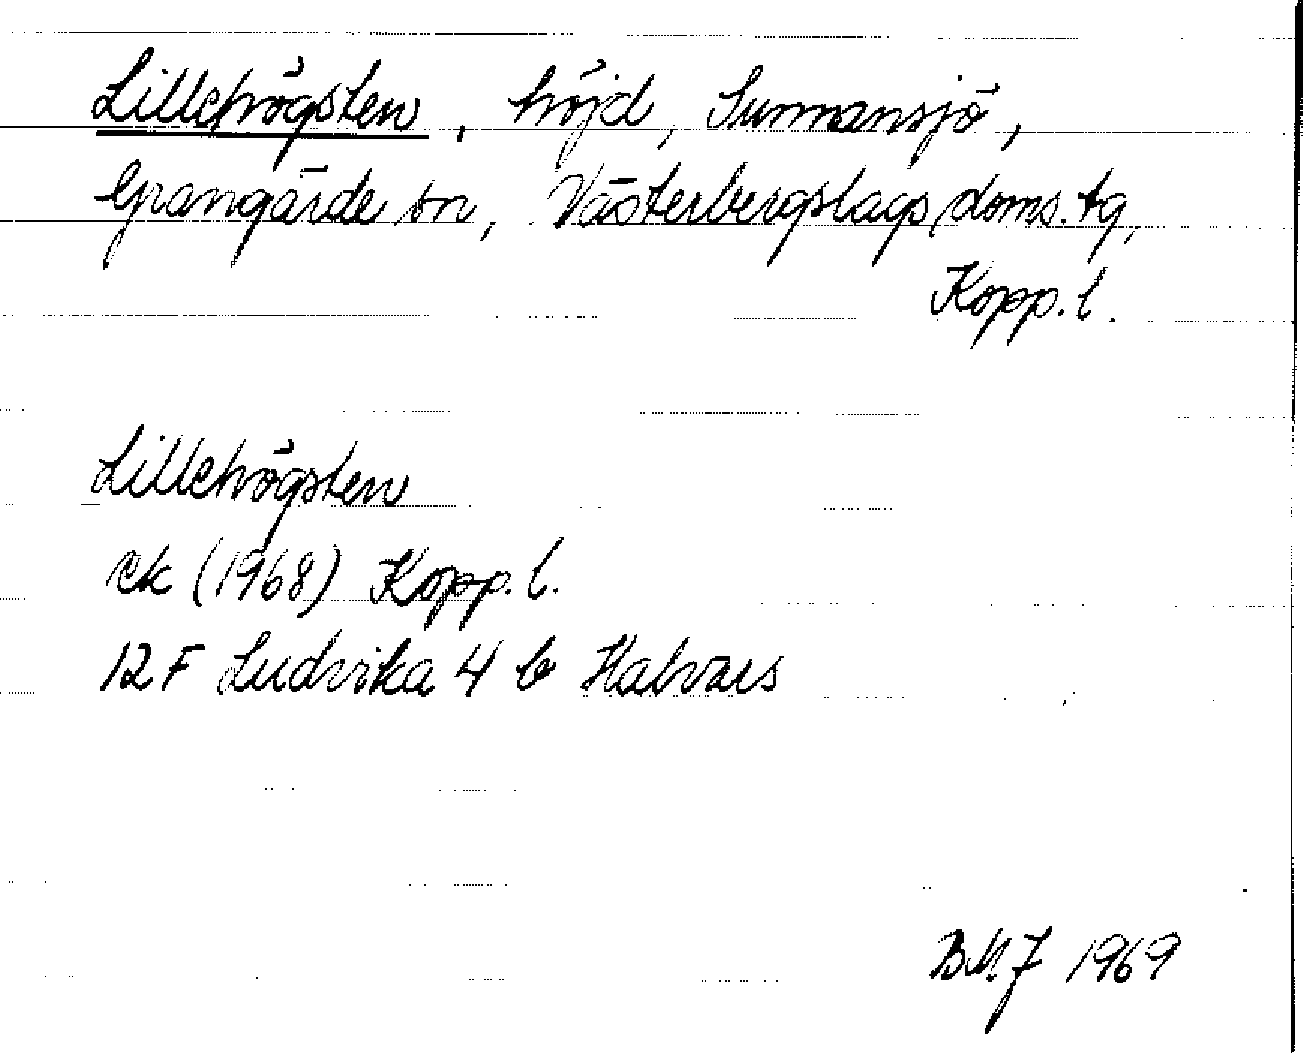 Lillehögsten, höjd, Sunnansjö,
Grangärde sn, Västerbergslags doms. tg,
Kopp. l.
Lillehögsten
ek (1968) Kopp. l.
12 F Ludvika 4 b Halvars
BMJ 1969